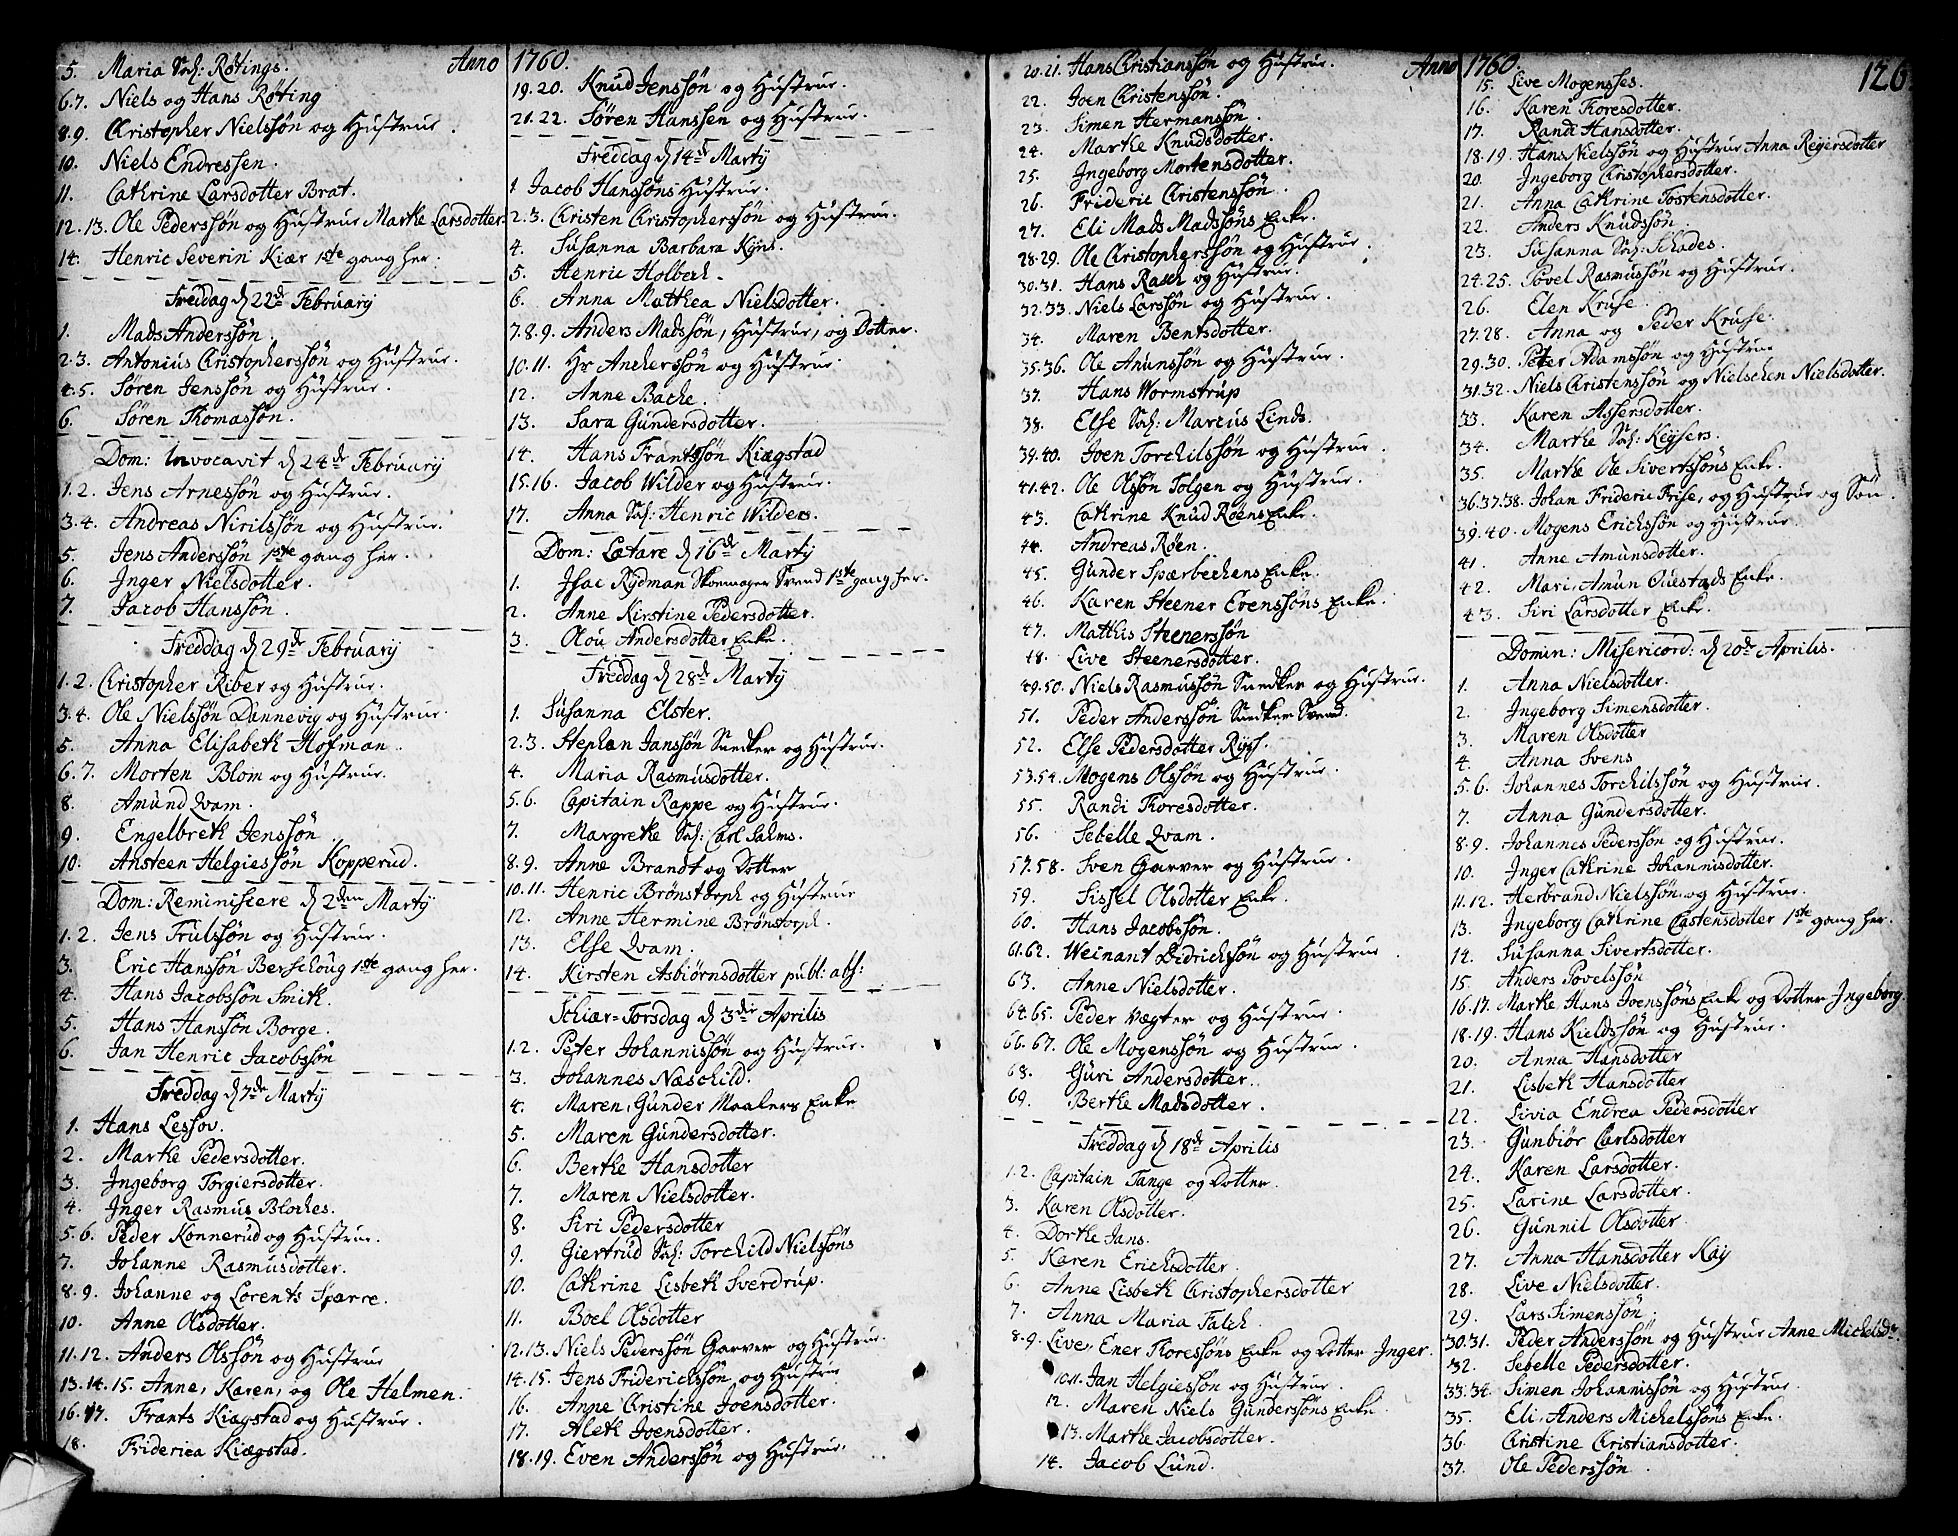 Anno 1760.
5. Maria Sal: Røtings.
6.7. Niels og Hans Røting
8.9. Christopher Nielssøn og Hustrue.
10. Niels Endressen.
11. Cathrine Larsdotter Brat.
12.13. Ole Pederssøn og Hustrue Marthe Larsdotter
14. Henric Severin Kiær 1ste gang her.
Freddag d 22de February
1. Mads Anderssøn
2.3. Antonius Christopherssøn og Hustrue.
4.5. Søren Jenssøn og Hustrue.
6. Søren Thomassøn.
Dom: Invocavit d 24de February
1.2. Jens Arnessøn og Hustrue.
3.4. Andreas Nirilssøn og Hustrue.
5. Jens Anderssøn 1ste gang her.
6. Inger Nielsdotter.
7. Jacob Hanssøn.
Freddag d 29de February
1.2. Christopher Riber og Hustrue.
3.4. Ole Nielssøn Dannevig og Hustrue.
5. Anna Elisabeth Hofman.
6.7. Morten Blom og Hustrue.
8. Amund Qvam.
9. Engelbreth Jenssøn
10. Ansteen Helgiessøn Kopperud.
Dom: Reminiscere d 2den Marty
1.2. Jens Trulssøn og Hustrue.
3. Eric Hanssøn Berschoug 1ste gang her.
4. Hans Jacobssøn Smith.
5. Hans Hanssøn Borge.
6. Jan Henric Jacobssøn
Freddag d 7de Marty
1. Hans Lessov.
2. Marthe Pedersdotter.
3. Ingeborg Torgiersdotter.
4. Inger Rasmus Bloches.
5.6. Peder Konnerud og Hustrue.
7. Johanne Rasmusdotter.
8.9. Johanne og Lorents Sparre.
10. Anne Olsdotter.
11.12. Anders Olssøn og Hustrue
13.14.15. Anne, Karen, og Ole Helmen.
16.17. Frants Kiægstad og Hustrue.
18. Friderica Kiægstad.
19.20. Knud Jenssøn og Hustrue.
21.22. Søren Hanssen og Hustrue.
Freddag d 14de Marty
1 Jacob Hanssøns Hustrue.
2.3. Christen Christopherssøn og Hustrue.
4. Susanna Barbara Kyns.
5. Henric Holbech.
6. Anna Matthea Nielsdotter.
7.8.9. Anders Madssøn, Hustrue, og Dotter.
10.11. Hr Anchersøn og Hustrue
12. Anne Bache.
13. Sara Gundersdotter.
14. Hans Frantssøn Kiægstad
15.16. Jacob Wilder og Hustrue.
17. Anna Sal: Henric Wilders.
Dom: Lætare d 16de Marty
1. Isac Rydman Skoemager Svend 1ste gang her.
2. Anne Kirstine Pedersdotter.
3. Olou Andersdotter Enke.
Freddag d 28de Marty
1. Susanna Elster.
2.3. Stephan Janssøn Snedker og Hustrue.
4. Maria Rasmusdotter.
5.6. Capitain Rappe og Hustrue.
7. Margrethe Sal: Carl Salms.
8.9. Anne Brandt og Dotter
10.11. Henric Brønstorph og Hustrue
12. Anne Hermine Brønstorph.
13. Else Qvam.
14. Kirsten Asbiørnsdotter publ: abs:
Schiær-Torsdag d 3die Aprilis
1.2. Peter Johannissøn og Hustrue.
3. Johannes Næschild.
4. Maren, Gunder Maalers Enke
5. Maren Gundersdotter.
6. Berthe Hansdotter
7. Maren Nielsdotter.
8. Siri Pedersdotter
9. Giertrud Sal: Torchild Nielssøns
10. Cathrine Lisbeth Sverdrup.
11. Boel Olsdotter
12.13. Niels Pederssøn Garver og Hustrue.
14.15. Jens Friderichssøn, og Hustrue
16. Anne Christine Joensdotter.
17. Aleth Joensdotter.
18.19. Even Anderssøn og Hustrue.
Anno 1760. 126
20.21. Hans Christianssøn og Hustrue.
22. Joen Christenssøn.
23. Simen Hermanssøn.
24. Marthe Knudsdotter.
25. Ingeborg Mortensdotter.
26. Frideric Christenssøn.
27. Eli Mads Madssøns Enke.
28.29. Ole Christopherssøn og Hustrue.
30.31. Hans Rasch og Hustrue.
32.33. Niels Larssøn og Hustrue.
34. Maren Bentsdotter.
35.36. Ole Amunssøn og Hustrue.
37. Hans Wormstrup
38. Else Sal: Marcus Linds.
39.40. Joen Torchilssøn og Hustrue.
41.42. Ole Olssøn Tolgen og Hustrue.
43. Cathrine Knud Røens Enke.
44. Andreas Røen.
45. Gunder Sparbechens Enke.
46. Karen Steener Evenssøns Enke.
47. Matthis Steenerssøn
48. Live Steenersdotter.
49.50. Niels Rasmussøn Snedker og Hustrue.
51. Peder Anderssøn Snedker Svend.
52. Else Pedersdotter Riis.
53.54. Mogens Olssøn og Hustrue.
55. Randi Thoresdotter.
56. Sebelle Qvam.
57.58. Sven Garver og Hustrue.
59. Sissel Olsdotter Enke.
60. Hans Jacobssøn.
61.62. Weinant Didrichsøn og Hustrue
63. Anne Nielsdotter.
64.65. Peder Vægter og Hustrue.
66.67. Ole Mogenssøn og Hustrue.
68. Guri Andersdotter.
69. Berthe Madsdotter.
Freddag d 18de Aprilis
1.2. Capitain Tange og Dotter.
3. Karen Olsdotter.
4. Dorthe Jans.
5. Karen Erichsdotter.
6. Anne Lisbeth Christophersdotter
7. Anna Maria Falch.
8.9. Live, Ener Thoressøns Enke og Dotter Inger.
10.11. Jan Helgiessøn og Hustrue.
12. Maren Niels Gunderssøns Enke.
13. Marthe Jacobsdotter.
14. Jacob Lund.
15. Live Mogenses.
16. Karen Thoresdotter.
17. Randi Hansdotter.
18.19. Hans Nielssøn og Hustrue Anna Reyersdotter
20. Ingeborg Christophersdotter.
21. Anna Cathrine Tostensdotter.
22. Anders Knudssøn
23. Susanna Sal: Schades.
24.25. Povel Rasmussøn og Hustrue.
26. Elen Kruse.
27.28. Anna og Peder Kruse.
29.30. Peter Adamssøn og Hustrue
31.32. Niels Christenssøn og Nielschen Nielsdotter.
33. Karen Assersdotter.
34. Marthe Sal: Keysers.
35. Marthe Ole Sivertssøns Enke.
36.37.38. Johan Frideric Frise, og Hustrue og Søn.
39.40. Mogens Erichssøn og Hustrue.
41. Anne Amunsdotter.
42. Mari Amun Questads Enke.
43. Siri Larsdotter Enke.
Domin: Misericord: d 20de Aprilis.
1. Anna Nielsdotter.
2. Ingeborg Simensdotter.
3. Maren Olsdotter
4. Anna Svens
5.6. Johannes Torchilssøn og Hustrue.
7. Anna Gundersdotter.
8.9. Johannes Pederssøn og Hustrue.
10. Inger Cathrine Johannisdotter.
11.12. Herbrand Nielssøn og Hustrue.
13. Ingeborg Cathrine Castensdotter 1ste gang her.
14. Susanna Sivertsdotter.
15. Anders Povelssøn
16.17. Marthe Hans Joenssøns Enke og Dotter Ingeborg.
18.19. Hans Kieldssøn og Hustrue.
20. Anna Hansdotter
21. Lisbeth Hansdotter
22. Livia Endrea Pedersdotter
23. Gunbiør Carlsdotter
24. Karen Larsdotter.
25. Larine Larsdotter.
26. Gunnil Olsdotter.
27. Anna Hansdotter Kay
28. Live Nielsdotter.
29. Lars Simenssøn.
30.31. Peder Anderssøn og Hustrue Anne Michelsdr.
32. Sebelle Pedersdotter.
33.34. Simen Johannissøn og Hustrue.
35. Eli, Anders Michelssøns Enke.
36. Christine Christiansdotter.
37. Ole Pederssøn.